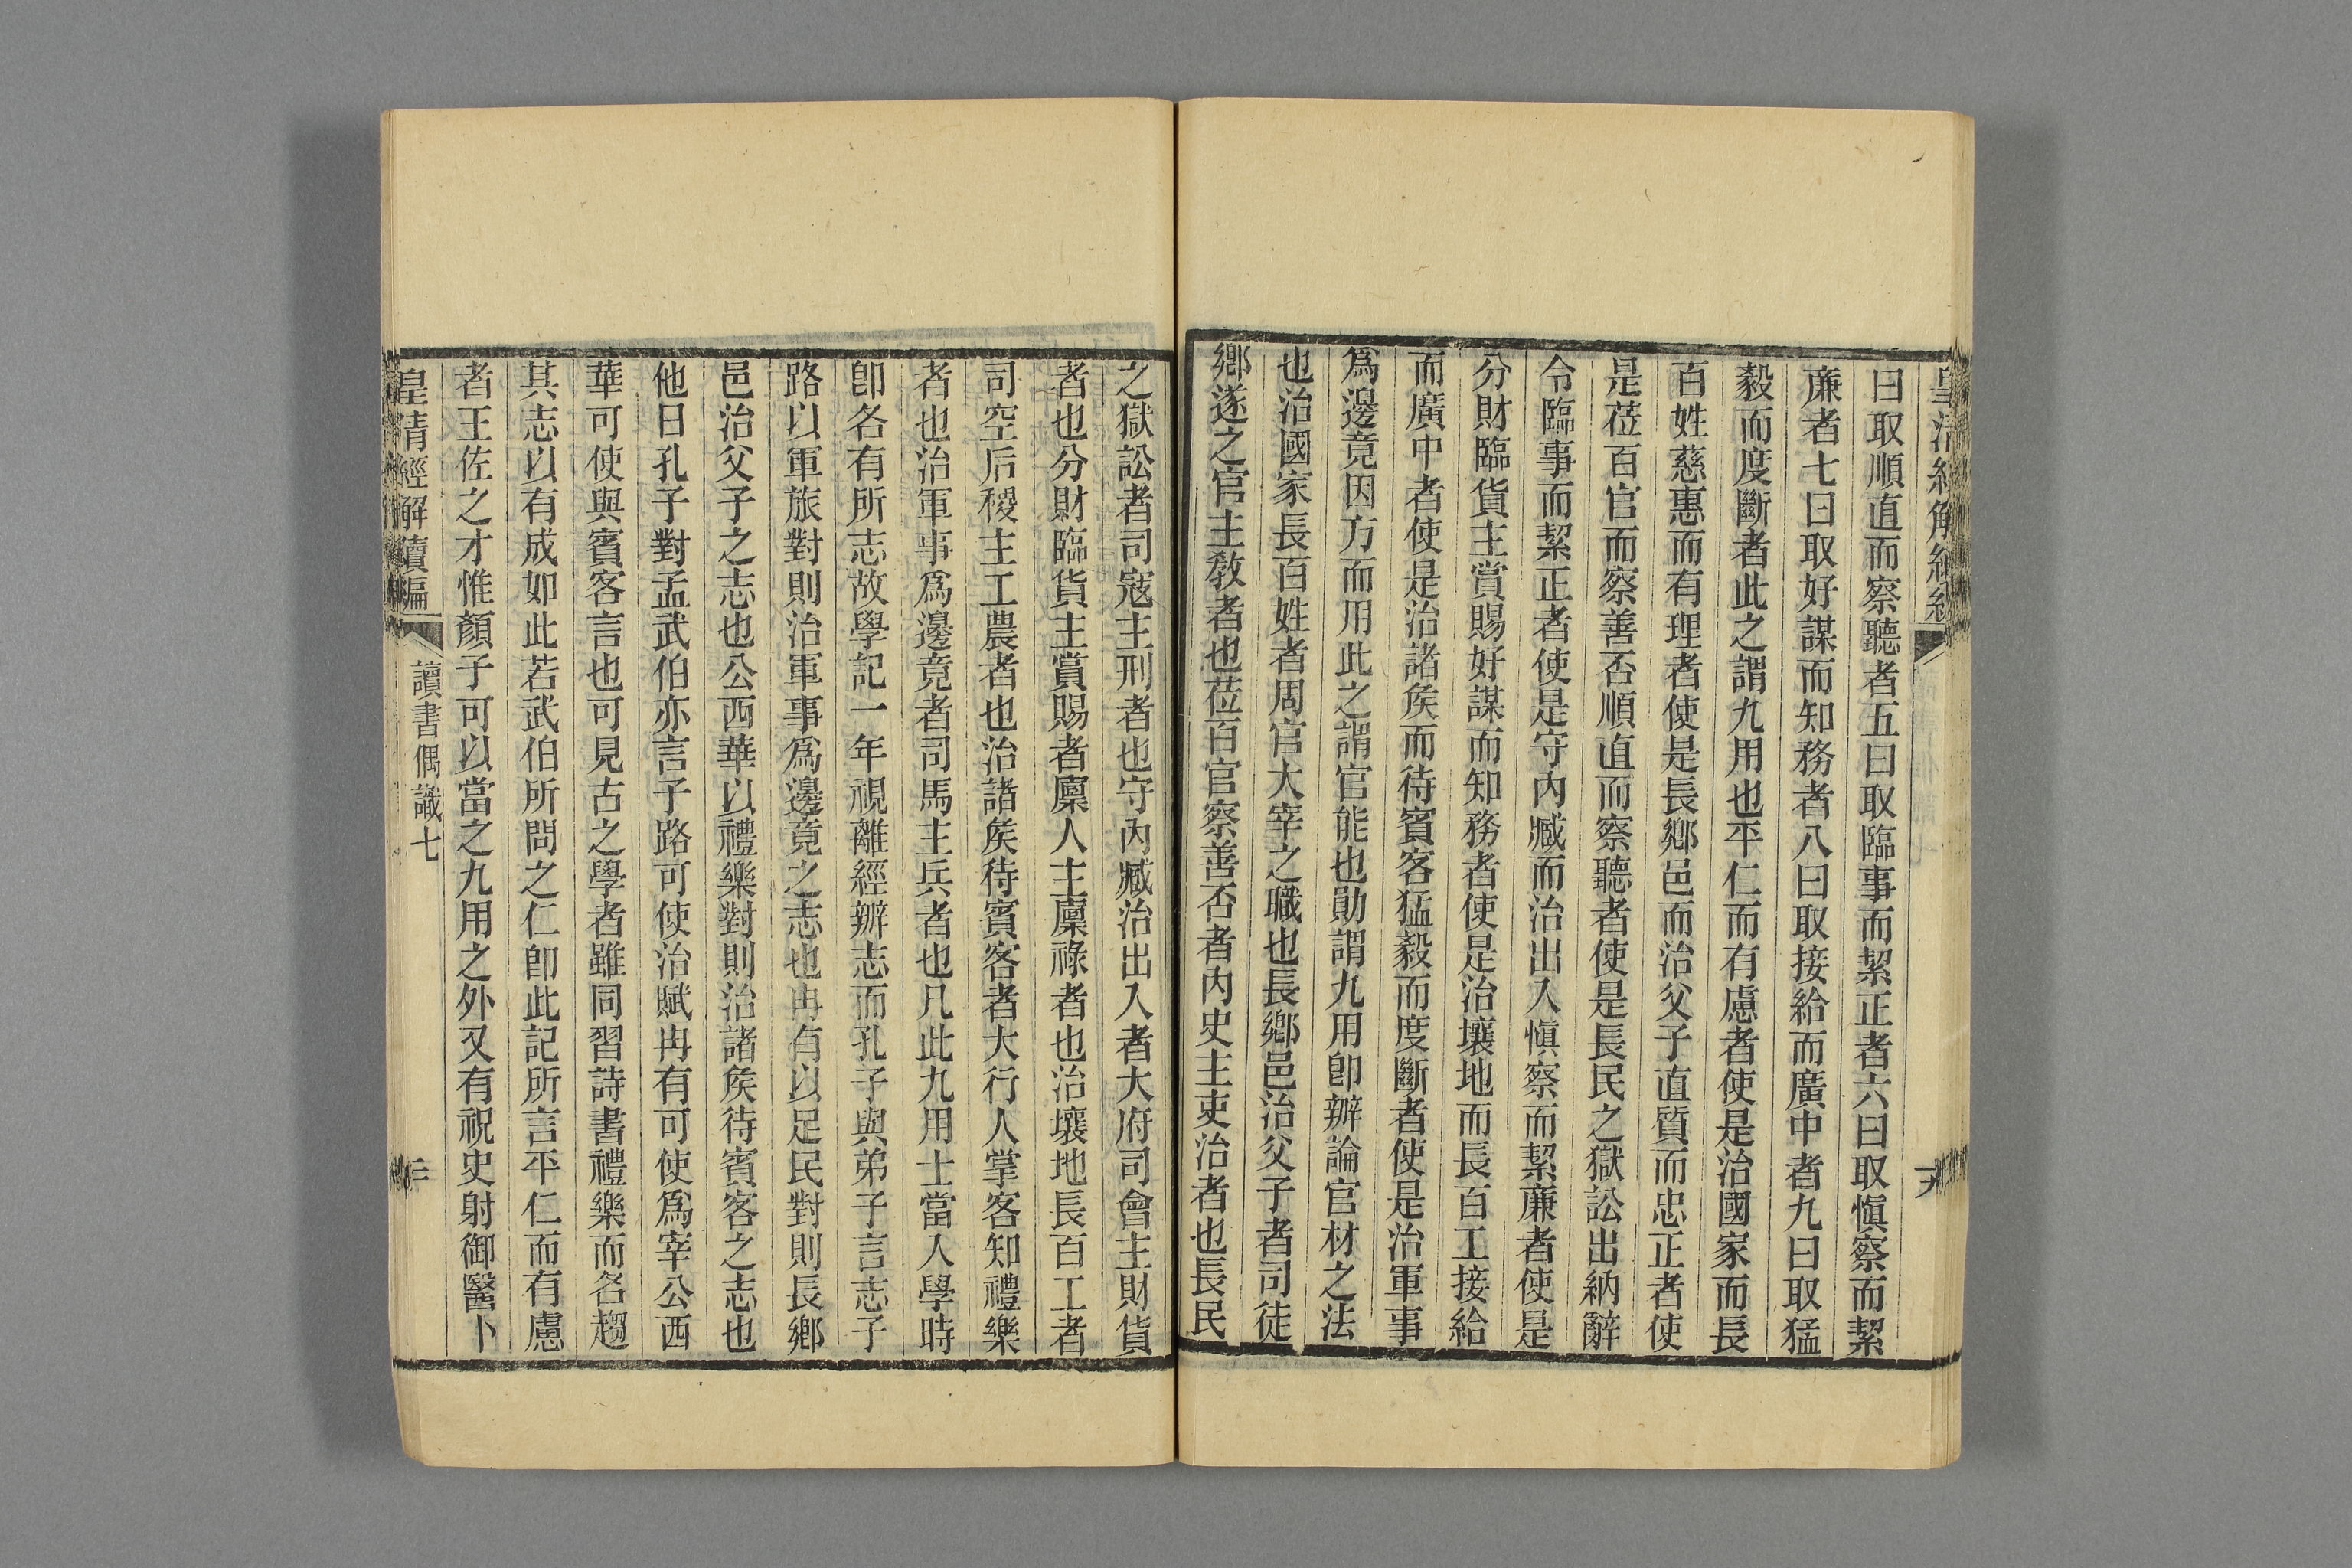 曰取順直而察聽者五曰取臨事而絜正者六曰取愼察而絜
亷者七曰取好謀而知務者八曰取接給而廣中者九曰取猛
毅而度斷者此之謂九用也平仁而有慮者使是治國家而長
百姓慈惠而有理者使是長鄉邑而治父子直質而忠正者使
是莅百官而察善否順直而察聽者使是長民之獄訟出納辭
令臨事而絜正者使是守內臧而治出入愼察而絜亷者使是
分財臨貨主賞賜好謀而知務者使是治壤地而長百工接給
而廣中者使是治諸矦而待賓客猛毅而度斷者使是治軍事
爲邊竟因方而用此之謂官能也勛謂九用卽辧論官材之法
也治國家長百姓者周官大宰之職也長鄉邑治父子者司徒
鄉遂之官主敎者也莅百官察善否者內史主吏治者也長民
之獄訟者司寇主刑者也守內臧治出入者大府司會主財貨
者也分財臨貨主賞賜者廩人主廩祿者也治壤地長百工者
司空后稷主工農者也治諸矦待賓客者大行人掌客知禮樂
者也治軍事爲邊竟者司馬主兵者也凡此九用士當入學時
卽各有所志故學記一年視離經辧志而孔子與弟子言志子
路以軍旅對則治軍事爲邊竟之志也冉有以足民對則長鄉
邑治父子之志也公西華以禮樂對則治諸矦待賓客之志也
他日孔子對孟武伯亦言子路可使治賦冉有可使爲宰公西
華可使與賓客言也可見古之學者雖同習詩書禮樂而各趨
其志以有成如此若武伯所問之仁卽此記所言平仁而有慮
者王佐之才惟顏子可以當之九用之外又有祝史射御醫卜
皇淸經解續編 讀書偶識七